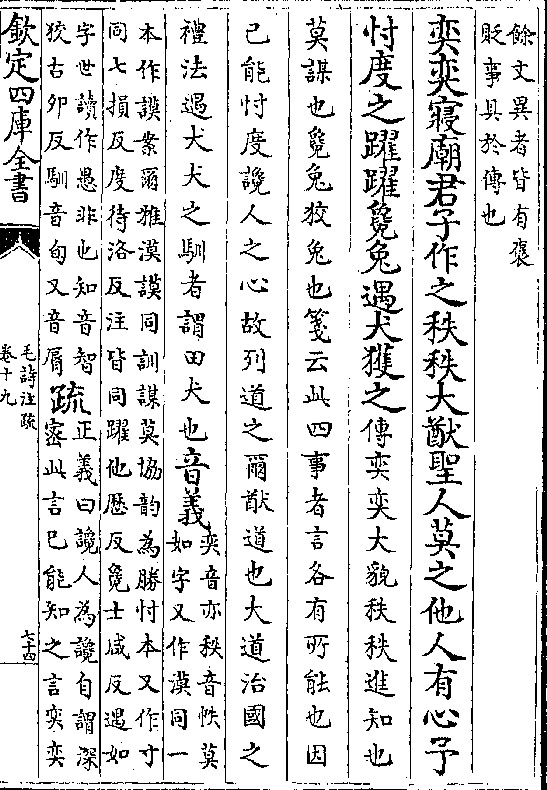 餘文異者皆有襃
貶事具於傳也
奕奕寢廟君子作之秩秩大猷聖人莫之他人有心予
忖度之躍躍毚兔遇犬獲之傳奕奕大貌秩秩進知也
莫謀也毚兔狡兔也箋云此四事者言各有所能也因
已能忖度讒人之心故列道之爾猷道也大道治國之
禮法遇犬犬之馴者謂田犬也音義
奕音亦秩音帙莫
如字又作漠同一
本作謨案爾雅漠謨同訓謀莫協韵為勝忖本又作寸
同七損反度待洛反注皆同躍他歷反毚士咸反遇如
字世讀作愚非也知音智
狡古卯反馴音旬又音脣
疏
正義曰讒人為讒自謂深
宻此言已能知之言奕奕
欽定四庫全書
毛詩注疏
卷十九
七十四